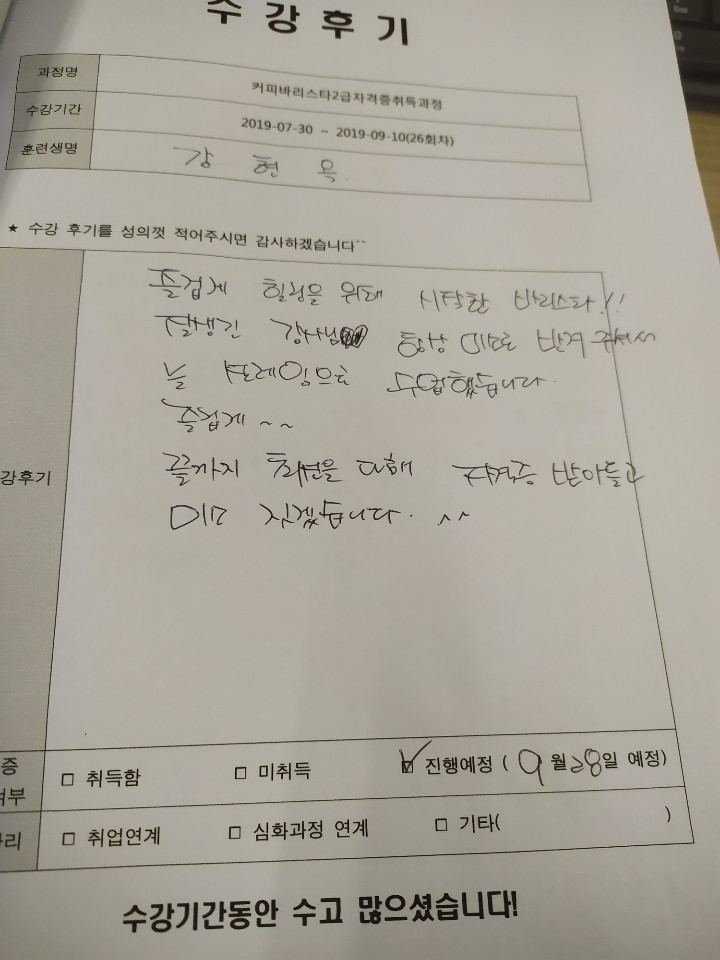 수강후기
과정명 커피바리스타2급자격증취득과정
수강기간 2019-07-30 ~ 2019-09-10(26회차)
훈련생명 강현옥
★ 수강 후기를 성의껏 적어주시면 감사하겠습니다^^
강후기
즐겁게 힐링을 위해 시작한 바리스타!!
잘생긴 강사님 항상 미소로 반겨 주셔서
늘 설레임으로 수업했습니다.
즐겁게~~
끝까지 최선을 다해 자격증 받아들고
미소 짓겠습니다. ^^
증
여부
□ 취득함 □ 미취득 ☑ 진행예정 ( 9월28일 예정)
리 □ 취업연계 □ 심화과정 연계 □ 기타( )
수강기간동안 수고 많으셨습니다!